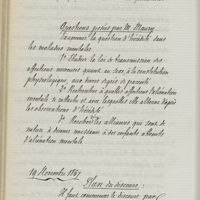 Questions posées par M. Maury
Examiner la question d'hérédité dans
les maladies mentales.
1° Etudier la loi de transmission des
affections nerveuses quant au sexe, à la constitution
physiologique, aux divers degrés de parenté.
2° Rechercher à quelles affections l'aliénation
mentale se rattache et avec lesquelles elle alterne d'après
les observations d'hérédité.
3° Rechercher les alliances qui sont de
nature à donner naissance à des enfants atteints
d'aliénation mentale.
19 Novembre 1867
Plan du discours :
Il faut commencer le discours par